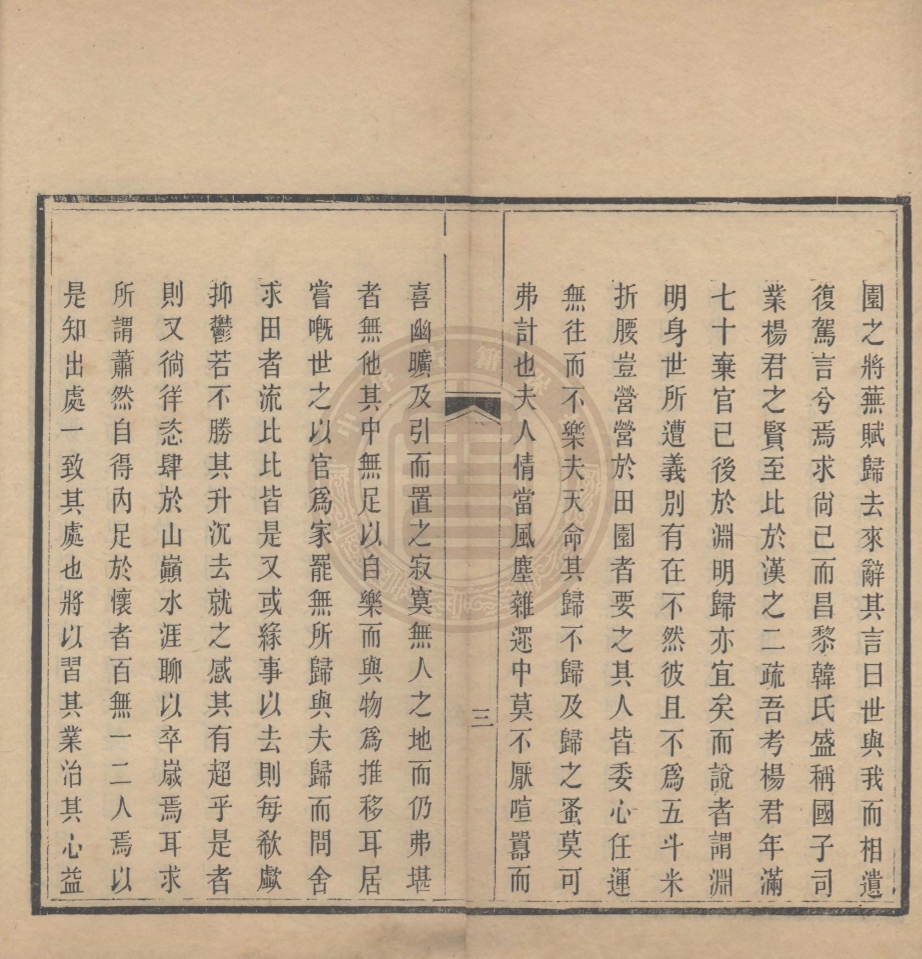 園之將蕪賦歸去來辭其言曰世與我而相遺
復駕言兮焉求尚已而昌黎韓氏盛稱國子司
業楊君之賢至比於漢之二疏吾考楊君年滿
七十棄官已後於淵明歸亦宜矣而說者謂淵
明身世所遭義別有在不然彼且不爲五斗米
折腰豈營營於田園者要之其人皆委心任運
無往而不樂夫天命其歸不歸及歸之蚤莫可
弗計也夫人情當風塵雜遝中莫不厭喧囂而
三
喜幽曠及引而置之寂寞無人之地而仍弗堪
者無他其中無足以自樂而與物爲推移耳居
嘗嘅世之以官爲家罷無所歸與夫歸而問舍
求田者流比比皆是又或緣事以去則每欷歔
抑鬱若不勝其升沉去就之感其有超乎是者
則又徜徉恣肆於山巔水涯聊以卒歲焉耳求
所謂蕭然自得內足於懷者百無一二人焉以
是知出處一致其處也將以習其業治其心益